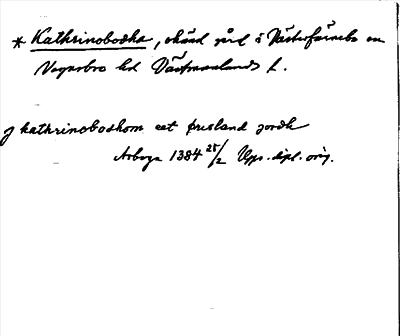 * Kathrinobodha, okänd gård i Västerfärnebo sn
Vagnsbro hd Västmanlands l.
J kathrinobodhom eet øresland jordh
Arboga 1384 25/2 Ups. dipl. orig.